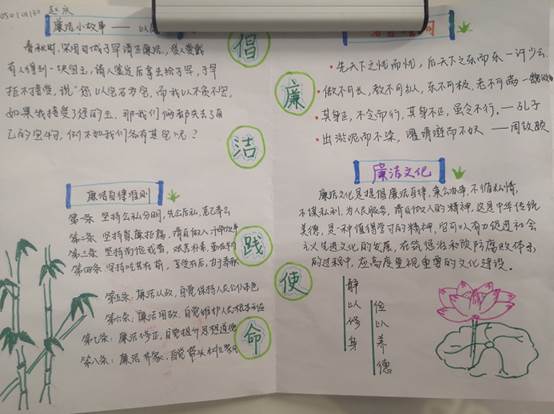 赵庆
廉洁小故事——以
春秋时,宋国司城子罕清正廉洁,受人爱戴
有人得到一块宝玉,请人鉴定后拿去给子罕,子罕
拒不接受,说"您以宝石为宝,而我以不贪为宝,
如果我接受了您的玉,那我们俩都失去了自
己的宝物,倒不如我们各有其宝呢?
廉洁自律准则
第一条 坚持公私分明,先公后私,克己奉公
第二条 坚持崇廉拒腐,清白做人,干净做事
第三条 坚持尚俭戒奢,艰苦朴素,勤俭节约
第四条 坚持吃苦在前,享受在后,甘于奉献
第五条 廉洁从政,自觉保持人民公仆本色
第六条 廉洁用权,自觉维护人民根本利益
第七条 廉洁修身,自觉提升思想道德
第八条 廉洁齐家,自觉带头树立
倡
廉
洁
践
使
命
先天下之忧而忧,后天下之乐而乐
做不可长,欲不可从,乐不可极,志不可满
其身正,不令而行,其身不正,虽令不行,——孔子
出淤泥而不染,濯清涟而不妖 ——周敦颐
廉洁文化
廉洁文化是提倡廉洁自律,秉公办事,不循私情,
不谋私利,为人民服务,清白做人的精神,这是中华传统
美德,是一种值得学习的精神,它可以有力促进社会
主义先进文化的发展,在
的过程中,应高度重视
的文化建设。
静以修身
俭以养德